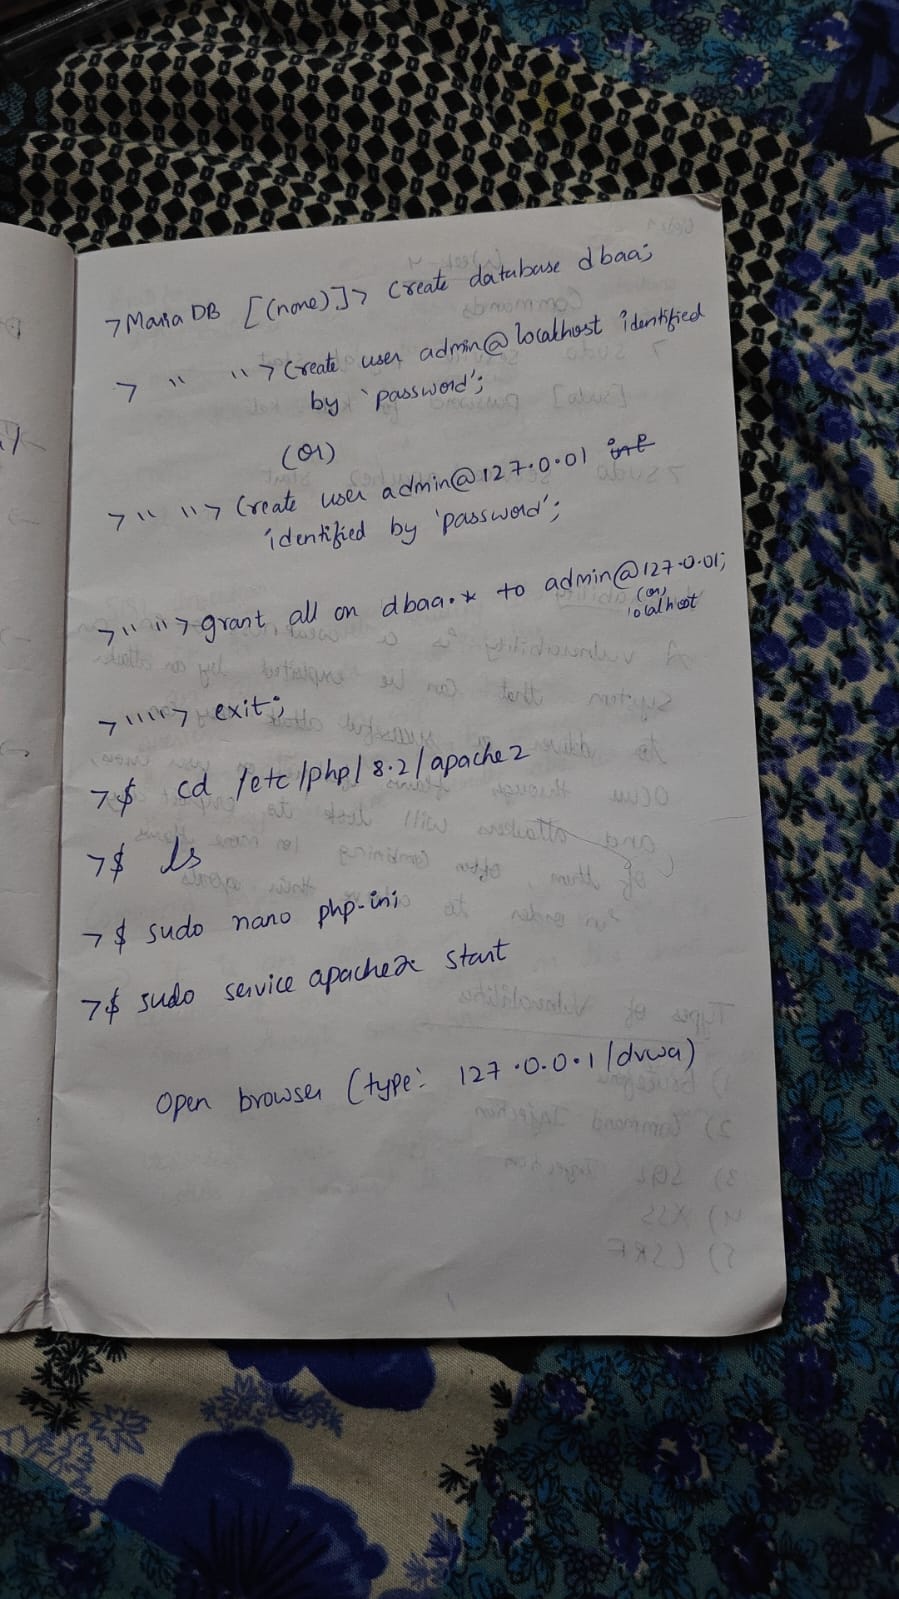 > Maria DB [(none)]> Create database dbaa;
> " "> Create user admin@localhost identified
by 'password';
(or)
> " "> Create user admin@127.0.01
identified by 'password';
> " "> grant all on dbaa.* to admin@127.0.01;
(or)
localhost
> " "> exit;
>$ cd /etc/php/8.2/apache2
>$ ls
>$ sudo nano php-ini
>$ sudo service apache2 start
Open browser (type: 127.0.0.1/dvwa)